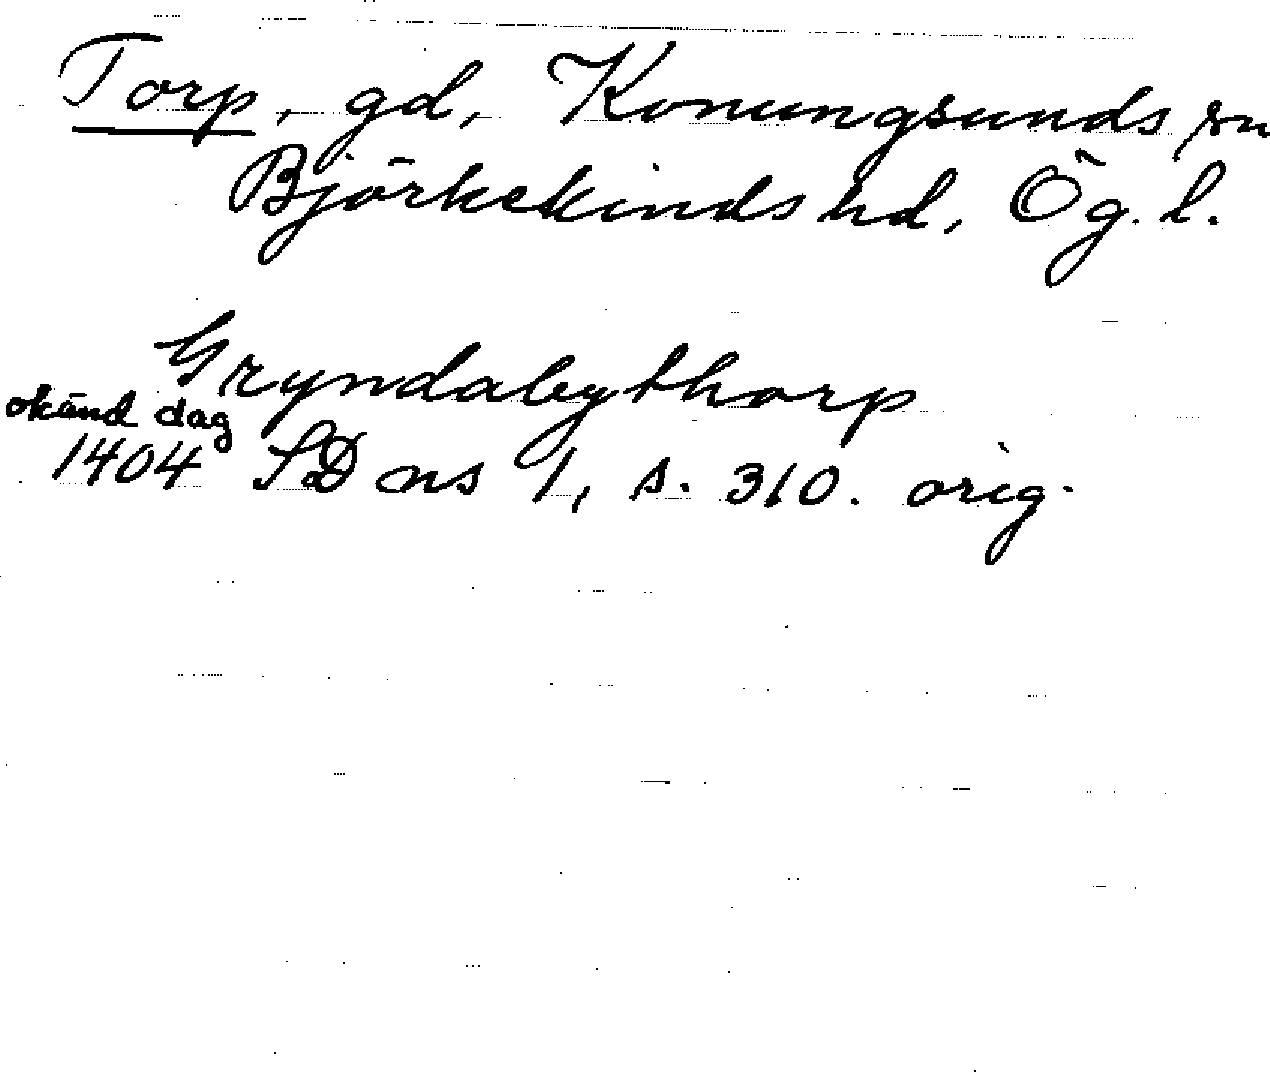 Torp, gd, Konungsunds sn
Björkekinds hd, Ög. l.
Gryndabythorp
okänd dag
1404 SD ns 1, s. 310. orig.